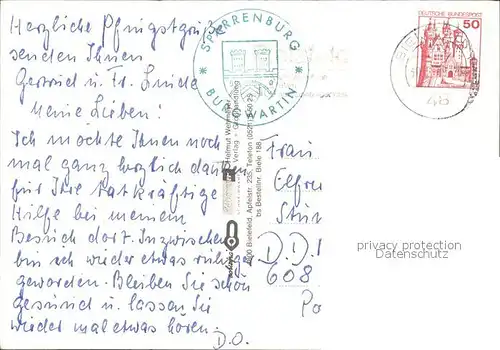 Herzliche Pfingstgrüße
senden Ihnen
Gertrud u. Fr. Linde
Meine Lieben!
Ich möchte Ihnen noch
mal ganz herzlich danken
für Ihre tatkräftige
Hilfe bei meinem
Besuch dort. Inzwischen
bin ich wieder etwas ruhig
geworden. Bleiben Sie schön
gesund u. lassen Sie
wieder mal etwas hören.
D.O.
SPARRENBURG
BURGWARTIN
Helmut
Verlag
4800 Bielefeld, Apfelstr. 235, Telefon
bs Bestellnr. Biele 188
schöning
DEUTSCHE BUNDESPOST
50
BIE
Frau
Elfre
Stü
D.D.
608
Po
privacy protection
Datenschutz